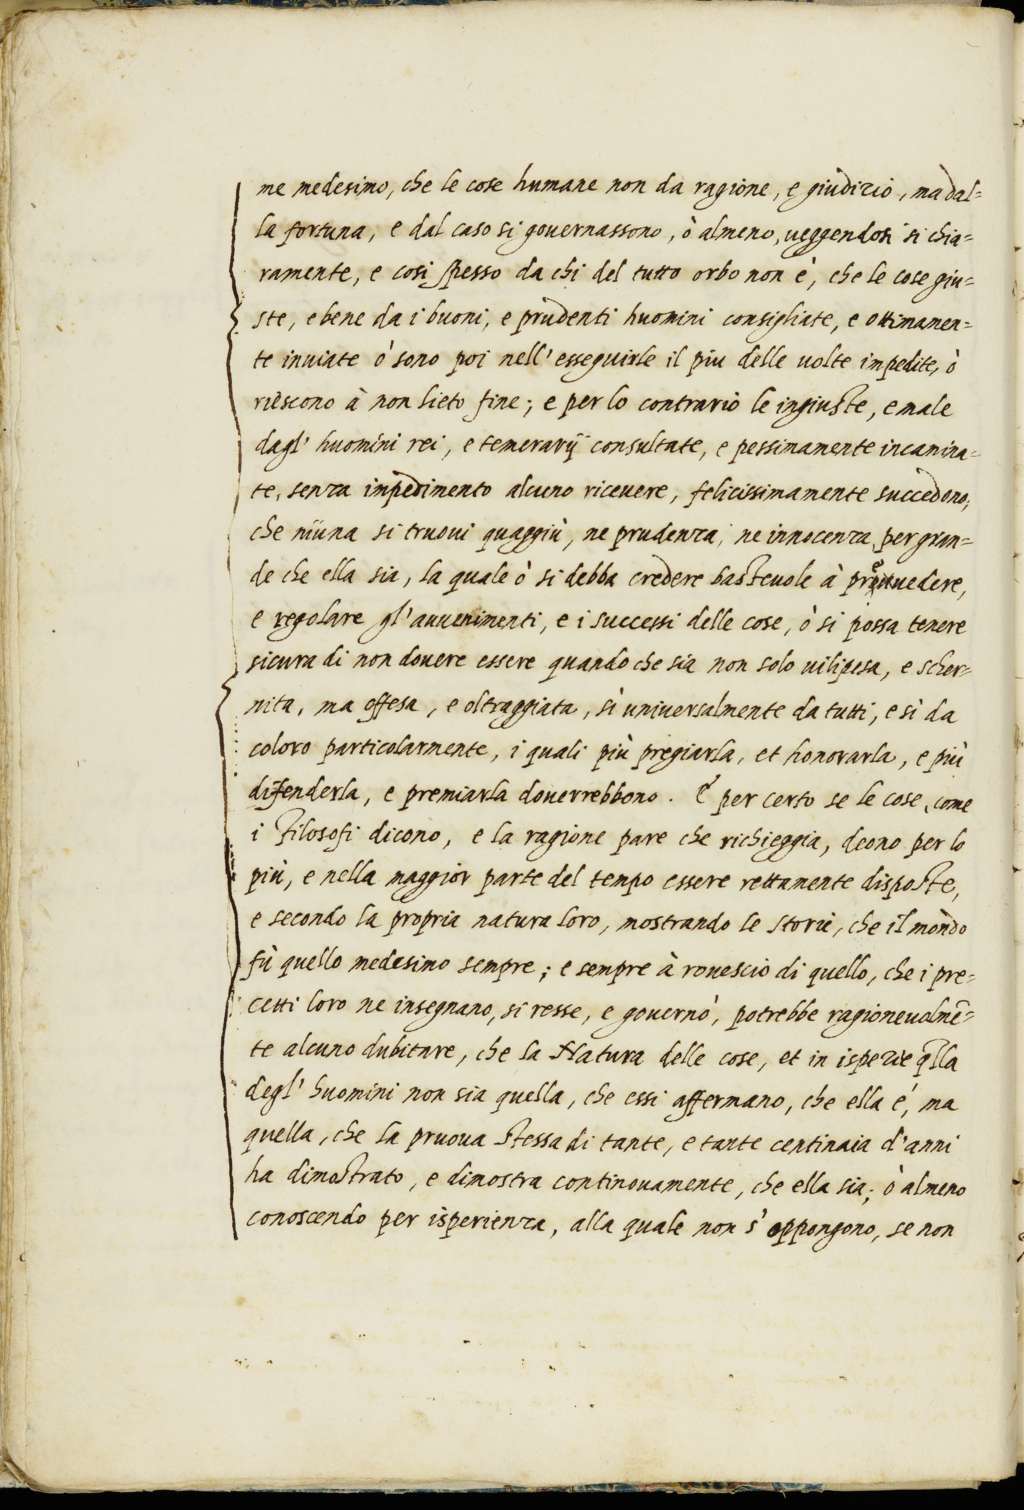 me medesimo, che le cose humane non da ragione, e giudizio, ma dal=
la fortuna, e dal caso si governassono, ò almeno, ueggendosi si chia=
ramente, e cosi spesso da chi del tutto orbo non è, che le cose giu=
ste, e bene da i buoni, e prudenti huomini consigliate, e ottimamen=
te inuiate ò sono poi nell' esseguirle il piu delle uolte impedite, ò
riescono à non lieto fine; e per lo contrario le ingiuste, e male
dagl' huomini rei, e temerarij consultate, e pessimamente incamina=
te, senza impedimento alcuno riceuere, felicissimamente succedono,
che niuna si truoui quaggiù, ne prudenza, ne innocenza per gran=
de che ella sia, la quale ò si debba credere basteuole à preuedere,
e regolare gl' auuenimenti, e i successi delle cose, ò si possa tenere
sicura di non douere essere quando che sia non solo uilipesa, e scher=
nita, ma offesa, e oltraggiata, sì uniuersalmente da tutti, e sì da
coloro particolarmente, i quali più pregiarla, et honorarla, e più
difenderla, e premiarla douerrebbono. E per certo se le cose, come
i Filosofi dicono, e la ragione pare che richieggia, deono per lo
più, e nella maggior parte del tempo essere rettamente disposte,
e secondo la propria natura loro, mostrando le storie, che il mondo
fù quello medesimo sempre; e sempre à rouescio di quello, che i pre=
cetti loro ne insegnano, si resse, e gouernò, potrebbe ragioneuolmē=
te alcuno dubitare, che la Natura delle cose, et in ispezie q̃lla
degl' huomini non sia quella, che essi affermano, che ella è, ma
quella, che la pruoua stessa di tante, e tante centinaia d'anni
ha dimostrato, e dimostra continouamente, che ella sia; ò almeno
conoscendo per isperienza, alla quale non s' oppongono, se non